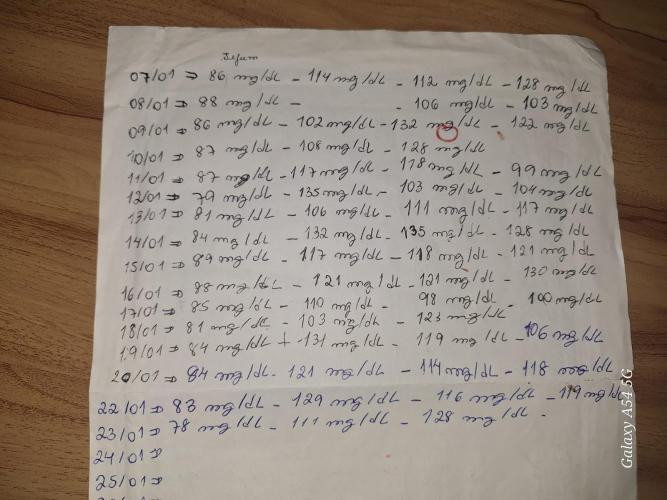 Jejum
07/01 ⇒ 86 mg/dL - 114 mg/dL - 112 mg/dL - 128 mg/dL
08/01 ⇒ 88 mg/dL - - 106 mg/dL - 103 mg/dL
09/01 ⇒ 86 mg/dL - 102 mg/dL - 132 mg/dL - 122 mg/dL
10/01 ⇒ 87 mg/dL - 108 mg/dL - 128 mg/dL
11/01 ⇒ 87 mg/dL - 117 mg/dL - 118 mg/dL - 99 mg/dL
12/01 ⇒ 79 mg/dL - 135 mg/dL - 103 mg/dL - 104 mg/dL
13/01 ⇒ 81 mg/dL - 106 mg/dL - 111 mg/dL - 117 mg/dL
14/01 ⇒ 84 mg/dL - 132 mg/dL - 135 mg/dL - 128 mg/dL
15/01 ⇒ 89 mg/dL - 117 mg/dL - 118 mg/dL - 121 mg/dL
16/01 ⇒ 88 mg/dL - 121 mg/dL - 121 mg/dL - 130 mg/dL
17/01 ⇒ 85 mg/dL - 110 mg/dL - 98 mg/dL - 100 mg/dL
18/01 ⇒ 81 mg/dL - 103 mg/dL - 123 mg/dL
19/01 ⇒ 84 mg/dL + 131 mg/dL - 119 mg/dL - 106 mg/dL
20/01 ⇒ 84 mg/dL - 121 mg/dL - 114 mg/dL - 118 mg/dL
22/01 ⇒ 83 mg/dL - 129 mg/dL - 116 mg/dL - 119 mg/dL
23/01 ⇒ 78 mg/dL - 111 mg/dL - 128 mg/dL -
24/01 ⇒
25/01 ⇒
Galaxy A54 5G